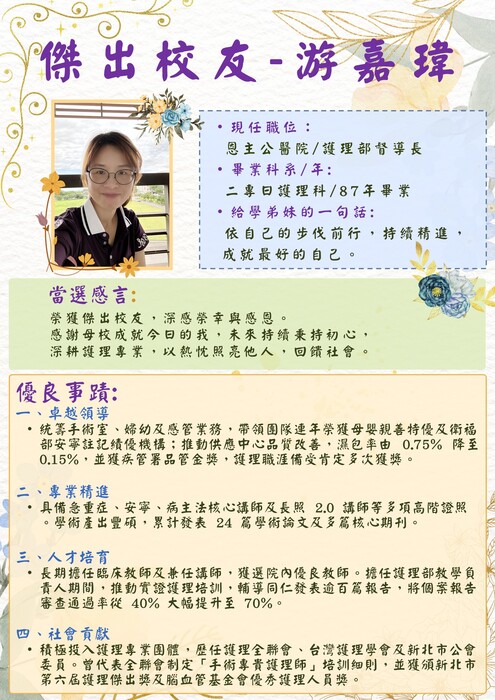 傑出校友-游嘉瑋
•現任職位：
恩主公醫院/護理部督導長
•畢業科系/年:
二專日護理科/87年畢業
•給學弟妹的一句話:
依自己的步伐前行，持續精進，
成就最好的自己。
當選感言:
榮獲傑出校友，深感榮幸與感恩。
感謝母校成就今日的我，未來持續秉持初心，
深耕護理專業，以熱忱照亮他人，回饋社會。
優良事蹟:
一、卓越領導
•統籌手術室、婦幼及感管業務，帶領團隊連年榮獲母嬰親善特優及衛福
部安寧註記績優機構；推動供應中心品質改善，濕包率由 0.75% 降至
0.15%，並獲疾管署品管金獎，護理職涯備受肯定多次獲獎。
二、專業精進
•具備急重症、安寧、病主法核心講師及長照 2.0 講師等多項高階證照
。學術產出豐碩，累計發表 24 篇學術論文及多篇核心期刊。
三、人才培育
•長期擔任臨床教師及兼任講師，獲選院內優良教師。擔任護理部教學負
責人期間，推動實證護理培訓，輔導同仁發表逾百篇報告，將個案報告
審查通過率從 40% 大幅提升至 70%。
四、社會貢獻
•積極投入護理專業團體，歷任護理全聯會、台灣護理學會及新北市公會
委員。曾代表全聯會制定「手術專責護理師」培訓細則，並獲頒新北市
第六屆護理傑出獎及腦血管基金會優秀護理人員獎。